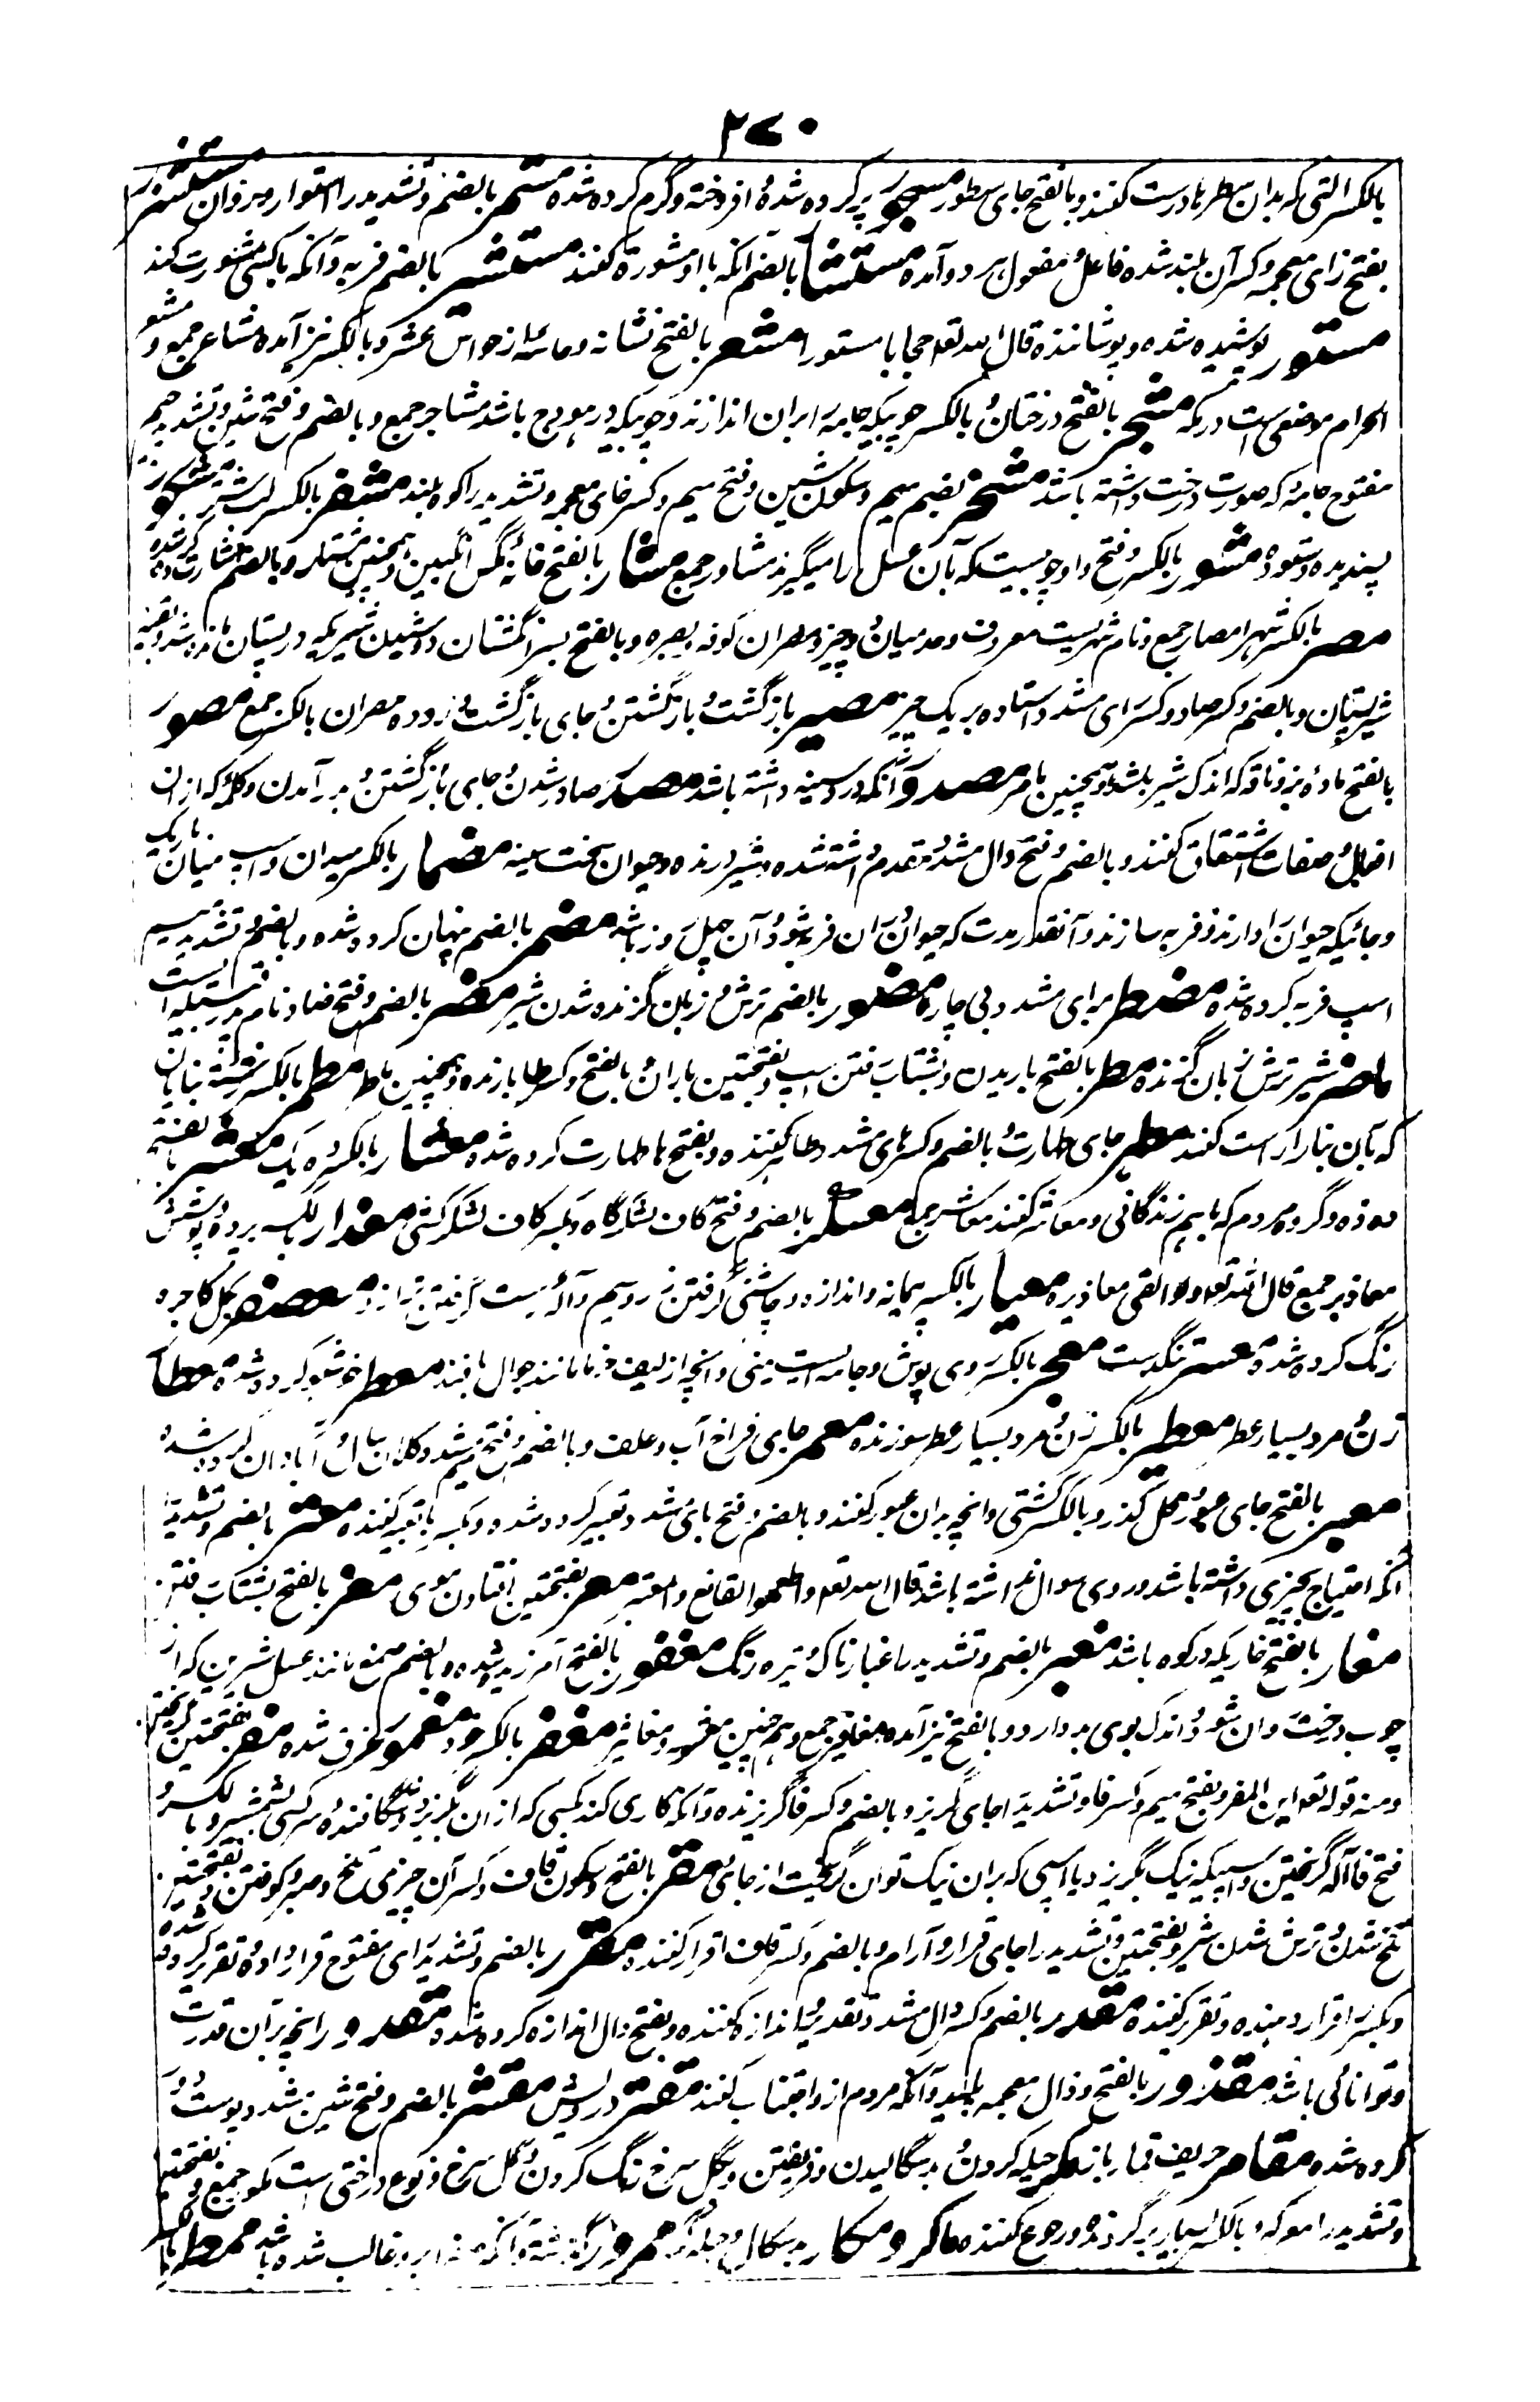 ۲۷۰
بالکسر التی که بدان سطرها درست کنند و بالفتح جای سطور مسجور پر کرده شده و افروخته و گرم کرده شده مستمر بالضم و تشدید را استوار و روان مستشزر
بفتح زای معجمه و کسر آن بلند شده فاعل و مفعول هر دو آمده مستشار بالضم آنکه با او مشورة کنند مستشیر بالضم فربه و آنکه با کسی مشورت کند
مستور پوشیده شده و پوشاننده قال الله تعه حجابا مستورا مشعر بالفتح نشانه و حاسهٔ از حواس عشر و بالکسر نیز آمده مشاعر جمع و مشعر
الحرام موضعی است در مکه مشجر بالفتح درختان و بالکسر چوبیکه جامه بران اندازند و چوبیکه در هودج باشد مشاجر جمع و بالضم و فتح شین و تشدید جیم
مفتوح جامهٔ که صورت درخت داشته باشد مشمخر بضم میم و سکون شین و فتح میم و کسر خای معجمه و تشدید را کوه بلند مشفر بالکسر لب شتر مشکور
پسندیده و ستوده مشور بالکسر و فتح واو چوبیست که بآن عسل را میگیرند مشاور جمع مشار بالفتح خانهٔ مگس انگبین و همچنین مشتار و بالضم اشارت کرده شده
مصر بالکسر شهر امصار جمع و نام شهریست معروف و حد میان دو چیز و مصران کوفه و بصره و بالفتح بسر انگشتان دوشیدن شیریکه در پستان مانده باشد و بقیه
شیر پستان و بالضم و کسر صاد و کسر رای مشدد استاده بر یک چیز مصیر بازگشت و بازگشتن و جای بازگشت و روده مصران بالکسر جمع مصور
بالفتح مادهٔ بز و ناقه که اندک شیر باشد و همچنین ماصر مصدور آنکه درد سینه داشته باشد مصدر صادر شدن و جای بازگشتن و برآمدن و کلمهٔ که از ان
افعال و صفات اشتقاق کنند و بالضم و فتح دال مشدد مقدم داشته شده و شیر درنده و حیوان سخت سینه مضمار بالکسر میدان و اسپ میان باریک
و جائیکه حیوان را دارند و فربه سازند و آنقدر مدت که حیوان دران فربه شود و آن چهل روز باشد مضمر بالضم پنهان کرده شده و بالضم و تشدید میم
اسپ فربه کرده شده مضطر برای مشدد بی چاره مضور بالضم ترش و زبان گزنده شدن شیر مضر بالضم و فتح ضاد نام قبیله است
ماضر شیر ترش زبان گزنده مطر بالفتح باریدن و بشتاب رفتن اسپ و بفتحتین باران و بالفتح و کسر طا بارنده و همچنین ماطر مطمر بالکسر رشتهٔ بنایان
که بآن بنا راست کنند مطهر جای طهارت و بالضم و کسر های مشدد طاهر کننده و بفتح ها طهارت کرده شده معشار بالکسر ده یک معشر بالفتح
ده ده و گروه مردم که باهم زندگانی و معاشرة کنند معاشر جمع معسکر بالضم و فتح کاف لشکرگاه و بکسر کاف لشکرکش معذار بالکسر پرده و پوشش
معاذیر جمع قال الله تعه ولو القی معاذیره معیار بالکسر پیمانه و اندازه و چاشنی گرفتن زر و سیم و آلهٔ است معصفر بگل کاجره
رنگ کرده شده معسر تنگدست معجر بالکسر روی پوش و جامه ایست یمنی و آنچه از لیف خرما مانند جوال بافند معطر خوشبو کرده شده معطار
زن و مرد بسیار عطر معطیر بالکسر زن و مرد بسیار عطر سوزنده معمر جای فراخ آب و علف و بالضم و فتح میم مشدد کلان سال و آبادان کرده شده
معبر بالفتح جای عبور و محل گذر و بالکسر کشتی و آنچه بدان عبور کنند و بالضم و فتح بای مشدد تعبیر کرده شده و بکسر با تعبیر کننده معتر بالضم و تشدید
آنکه احتیاج بچیزی داشته باشد و روی سوال نداشته باشد قال الله تعه و اطعموا القانع و المعتر معر بفتحتین افتادن موی مغر بالفتح بشتاب رفتن
مغار بالفتح غاریکه در کوه باشد مغبر بالضم و تشدید را غبارناک و تیره رنگ مغفور بالفتح آمرزیده شده و بالضم صمغ مانند عسل شیرین که از
چوب درخت روان شود و اندک بوی بد دارد و بالفتح نیز آمده مغافیر جمع و هم چنین مغثور و مغاثیر مغفر بالکسر خود مغمور غرق شده مفر بفتحتین گریختن
و منه قوله تعه این المفر و بفتح میم و کسر فا و تشدید را جای گریز و بالضم و کسر فا گریزنده و آنکه کاری کند بکسی که از ان بگریزد و شگافنده سر کسی بشمشیر و بالکسر و
فتح فا آلهٔ گریختن و اسپیکه نیک بگریزد یا اسپی که بران نیک توان گریخت از جائی مقر بالفتح و سکون قاف و کسر آن چیزی تلخ و صبر و کوفتن و بفتحتین
تلخ شدن و ترش شدن شیر و بفتحتین و تشدید را جای قرار و آرام و بالضم و کسر قاف اقرار کننده مقرر بالضم و تشدید رای مفتوح قرار داده و تقریر کرده شده
و بکسر اقرار دهنده و تقریر کننده مقدر بالضم و کسر دال مشدد تقدیر و اندازه کننده و بفتح دال اندازه کرده شده مقدور آنچه بر آن قدرت
و توانائی باشد مقذور بالفتح و ذال معجمه پلید و آنکه مردم از و اجتناب کنند مقتر درویش مقشر بالضم و فتح شین مشدد پوست دور
کرده شده مقامر حریف قمار باز مکر حیله کردن و بدسگالیدن و فریفتن و بگل سرخ رنگ کردن و گل سرخ و نوع درختی است مکور جمع و بفتحتین
و تشدید را معرکه و بالکسر بسیار برگردنده و رجوع کننده ماکر و مکار بدسگال و حیله گر ممرور غالب شده باشد ممطر بالکسر